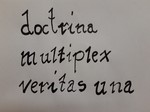 doctrina
multiplex
veritas una